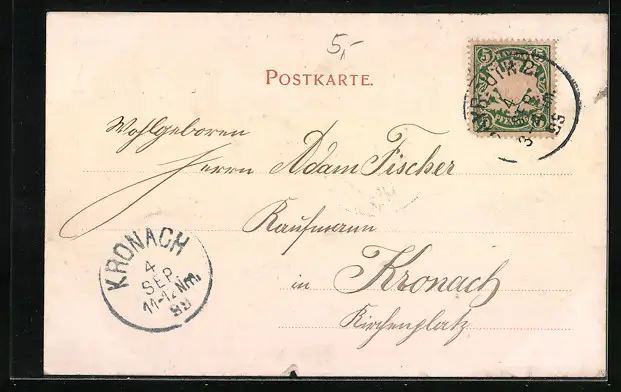 5,-
POSTKARTE.
5
PFENNIG
4
SEP
Wohlgeboren
Herrn Adam Fischer
Kaufmann
in Kronach
Kirchenplatz
KRONACH
4
SEP.
11-12 Nm.
99